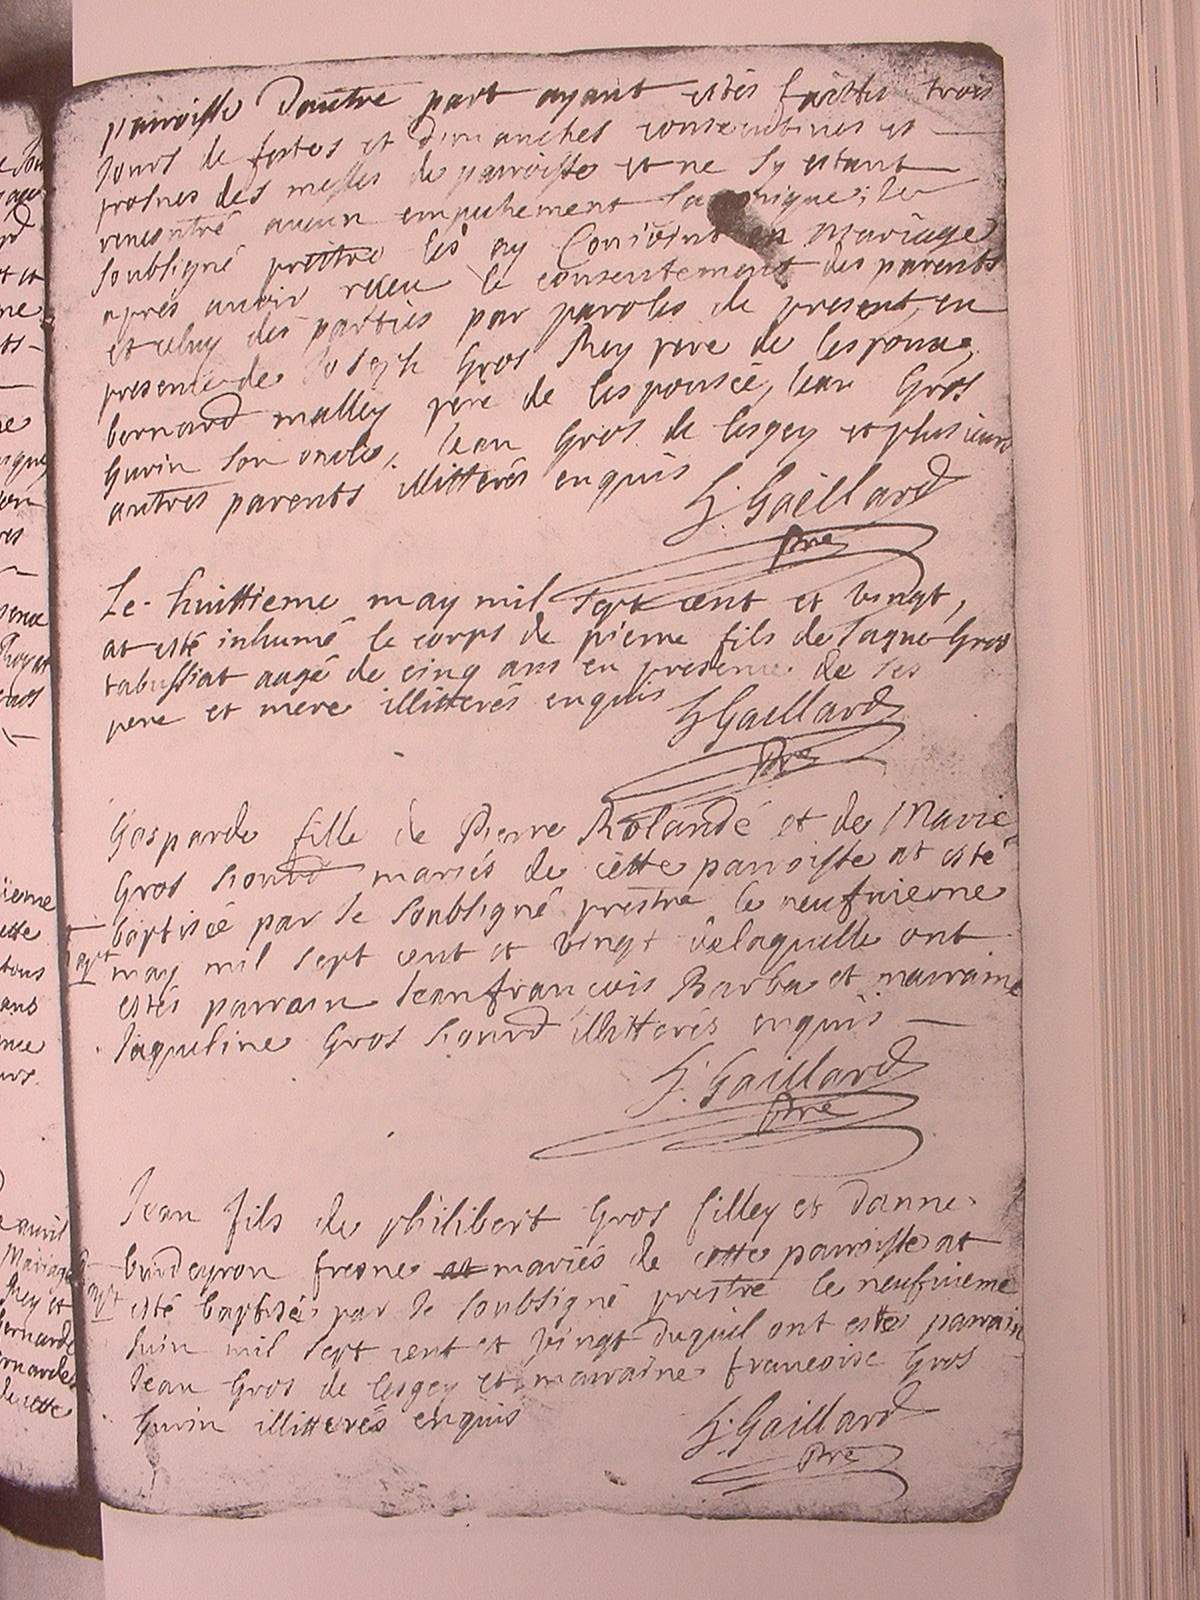 parroisse dautre part ayant estés faictes trois
Jours de festes et dimanches consecutives et
prosnes des messes de parroisse et ne sy estant
rencontré aucun empechement canonique, Je
soubsigné prestre les ay Conjoint en mariage
apres avoir receu le consentement des parents
et celuy des parties par paroles de present, en
presence de Joseph Gros Rey pere de lespoux,
bernard malley pere de lespousée, Jean Gros
Gurin son oncle, Jean Gros de lesgey et plusieurs
autres parents illitterés enquis
J. Gaillard
Pre
Le huittieme may mil sept cent et vingt,
at esté inhumé le corps de pierre fils de Jaque Gros
tabussiat aagé de cinq ans en presence de ses
pere et mere illitterés enquis J Gaillard
Pre
Gasparde fille de Pierre Rolande et de Marie
Gros sourd mariés de cette parroisse at esté
baptisée par le soubsigné prestre le neufvieme
may mil sept cent et vingt de laquelle ont
estés parrain Jean françois Barba et marraine
Jaqueline Gros sourd illitterés enquis
J. Gaillard
Pre
Jean fils de philibert Gros filley et danne
bindeyron fresne at mariés de cette parroisse at
esté baptisé par le soubsigné prestre le neufvieme
Juin mil sept cent et vingt duquel ont estés parrain
Jean Gros de lesgey et marraine francoise Gros
Gurin illitterés enquis
J. Gaillard
Pre